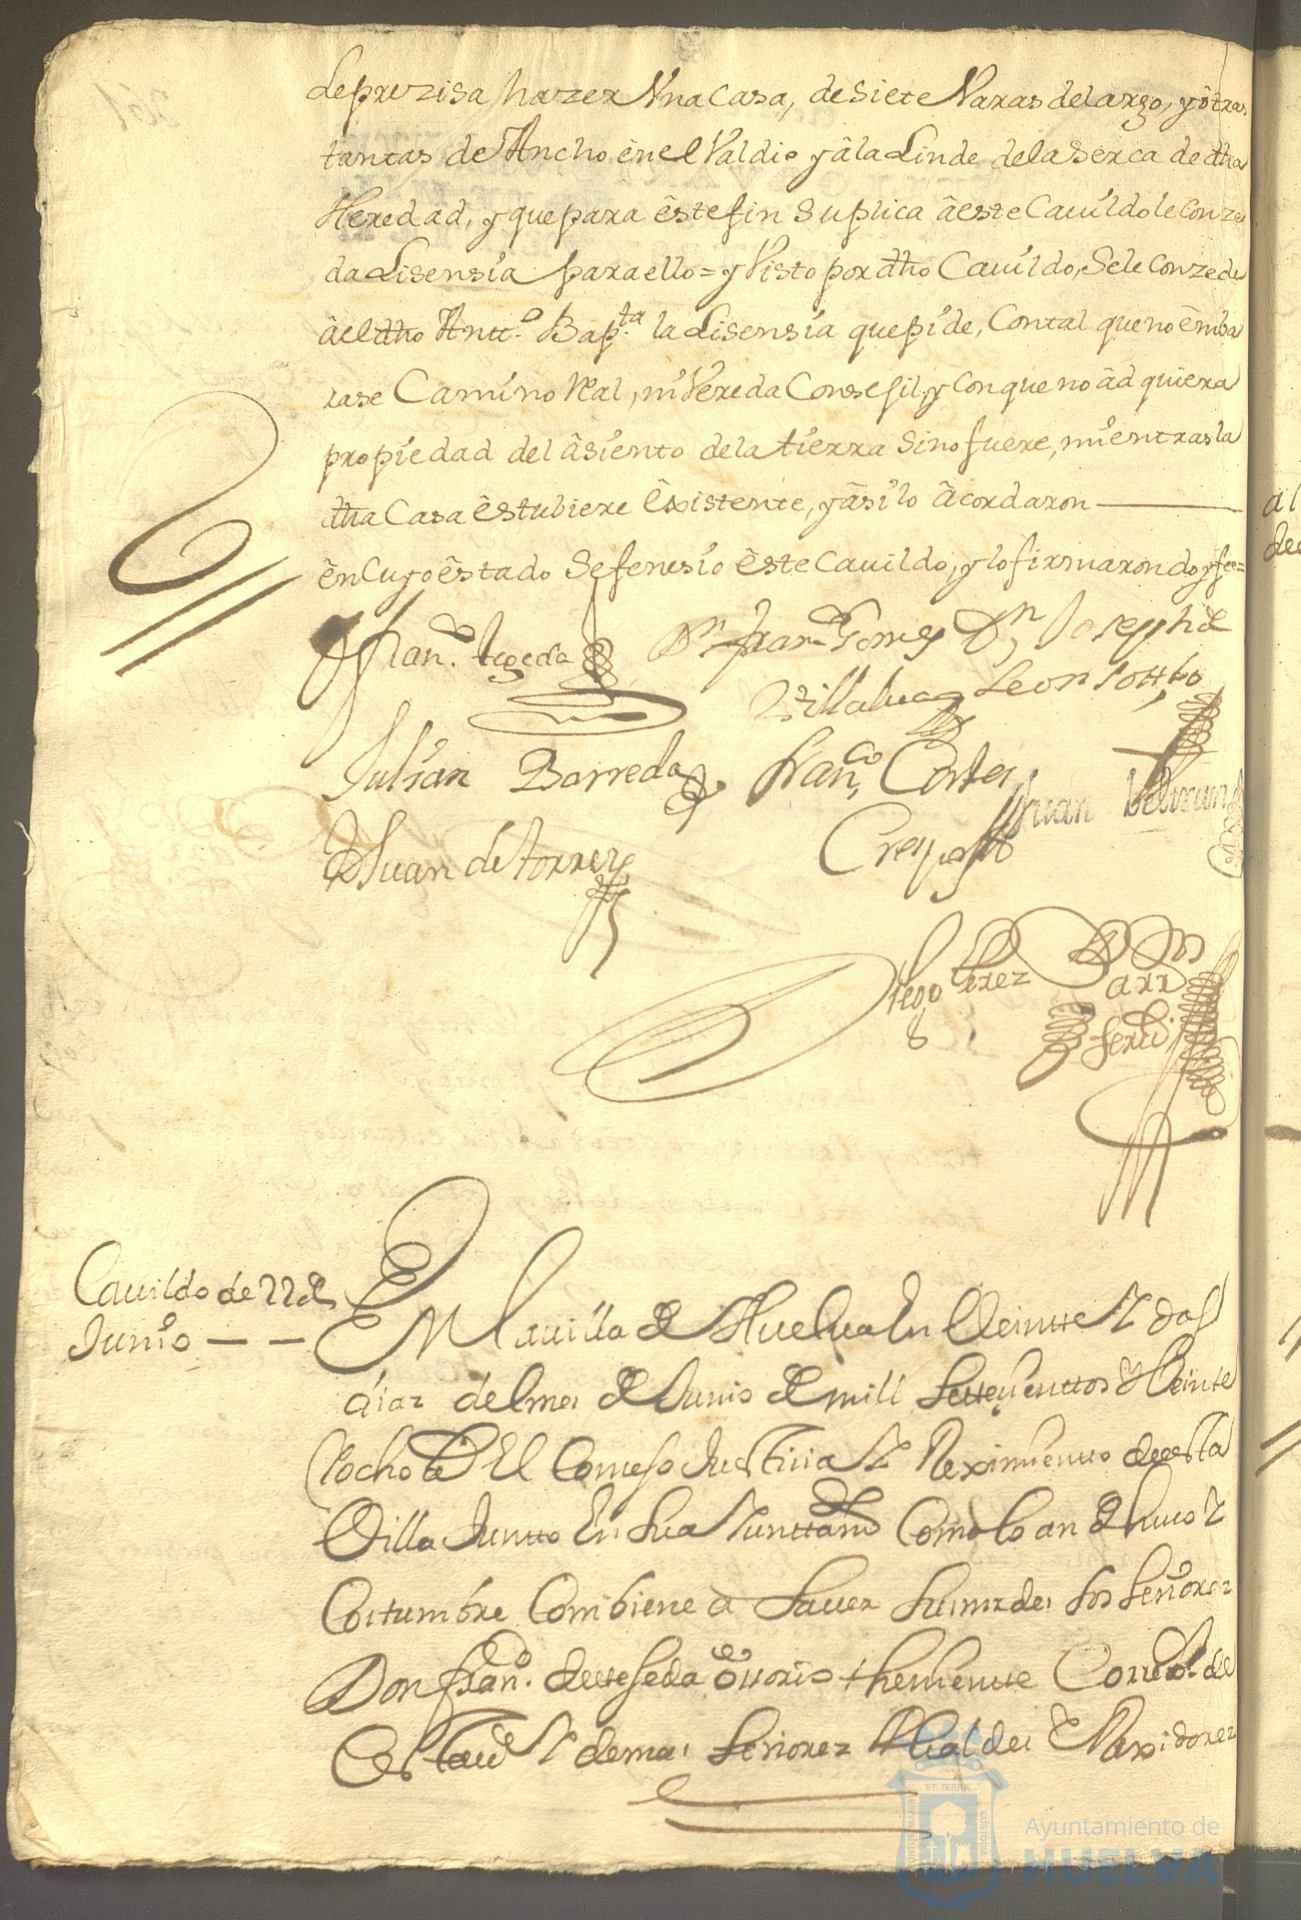 le prezisa hazer Vna Casa, de siete Varas de largo, y ôtras
tantas de Ancho ên el Valdio y â la Linde de la serca de dha
Heredad, y que para êste fin suplica â este Cauildo le conze
da Lisensia para ello = y Visto por dho Cauildo, Se le Conzede
âel dho Antt.º Bap.ta la Lisensia que pide, Con tal que no êmba
rase Camino Real, ni Vereda Consegil, y Con que no âdquiera
propiedad del âsiento de la tierra sino fuere, mientras la
dha Casa êstubiere Êxistente, y âsi lo âcordaron
ên Cuyo êstado Se fenesio êste Cauildo, y lo firmaron doy fee =
Fran.co tegeda
Dn Fran.co Gomez Dn Joseph de
Villalua Leon
Julian Barreda fran.co Cortes Juan Veltran
D Juan de torres Crespo
Diego Perez
Cauildo de 22 de
Junio
En la uilla de Huelua En Veintte Y dos
dias del mes de Junio de mill Settecienttos y Veinte
Y ocho as El Consejo Justicia Y Reximientto de esta
Villa Juntto En su a Yunttamto Como lo an de huso Y
Costumbre Combiene a Sauer sus mrdes los señores
Don fran.co de teseda ossorio theniente Correxor de
Esta uª Y demas señores Alcaldes Y Rexidores
Ayuntamiento de
HUELVA